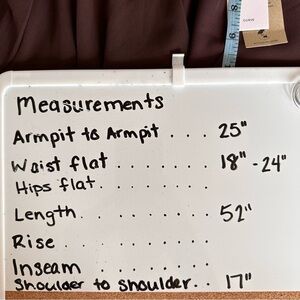 Measurements
Armpit to Armpit . . . . 25"
Waist flat . . . . . . . . 18" - 24"
Hips flat . . . . . . . . .
Length . . . . . . . . . 52"
Rise . . . . . . . . . .
Inseam . . . . . . . .
Shoulder to shoulder . . 17"